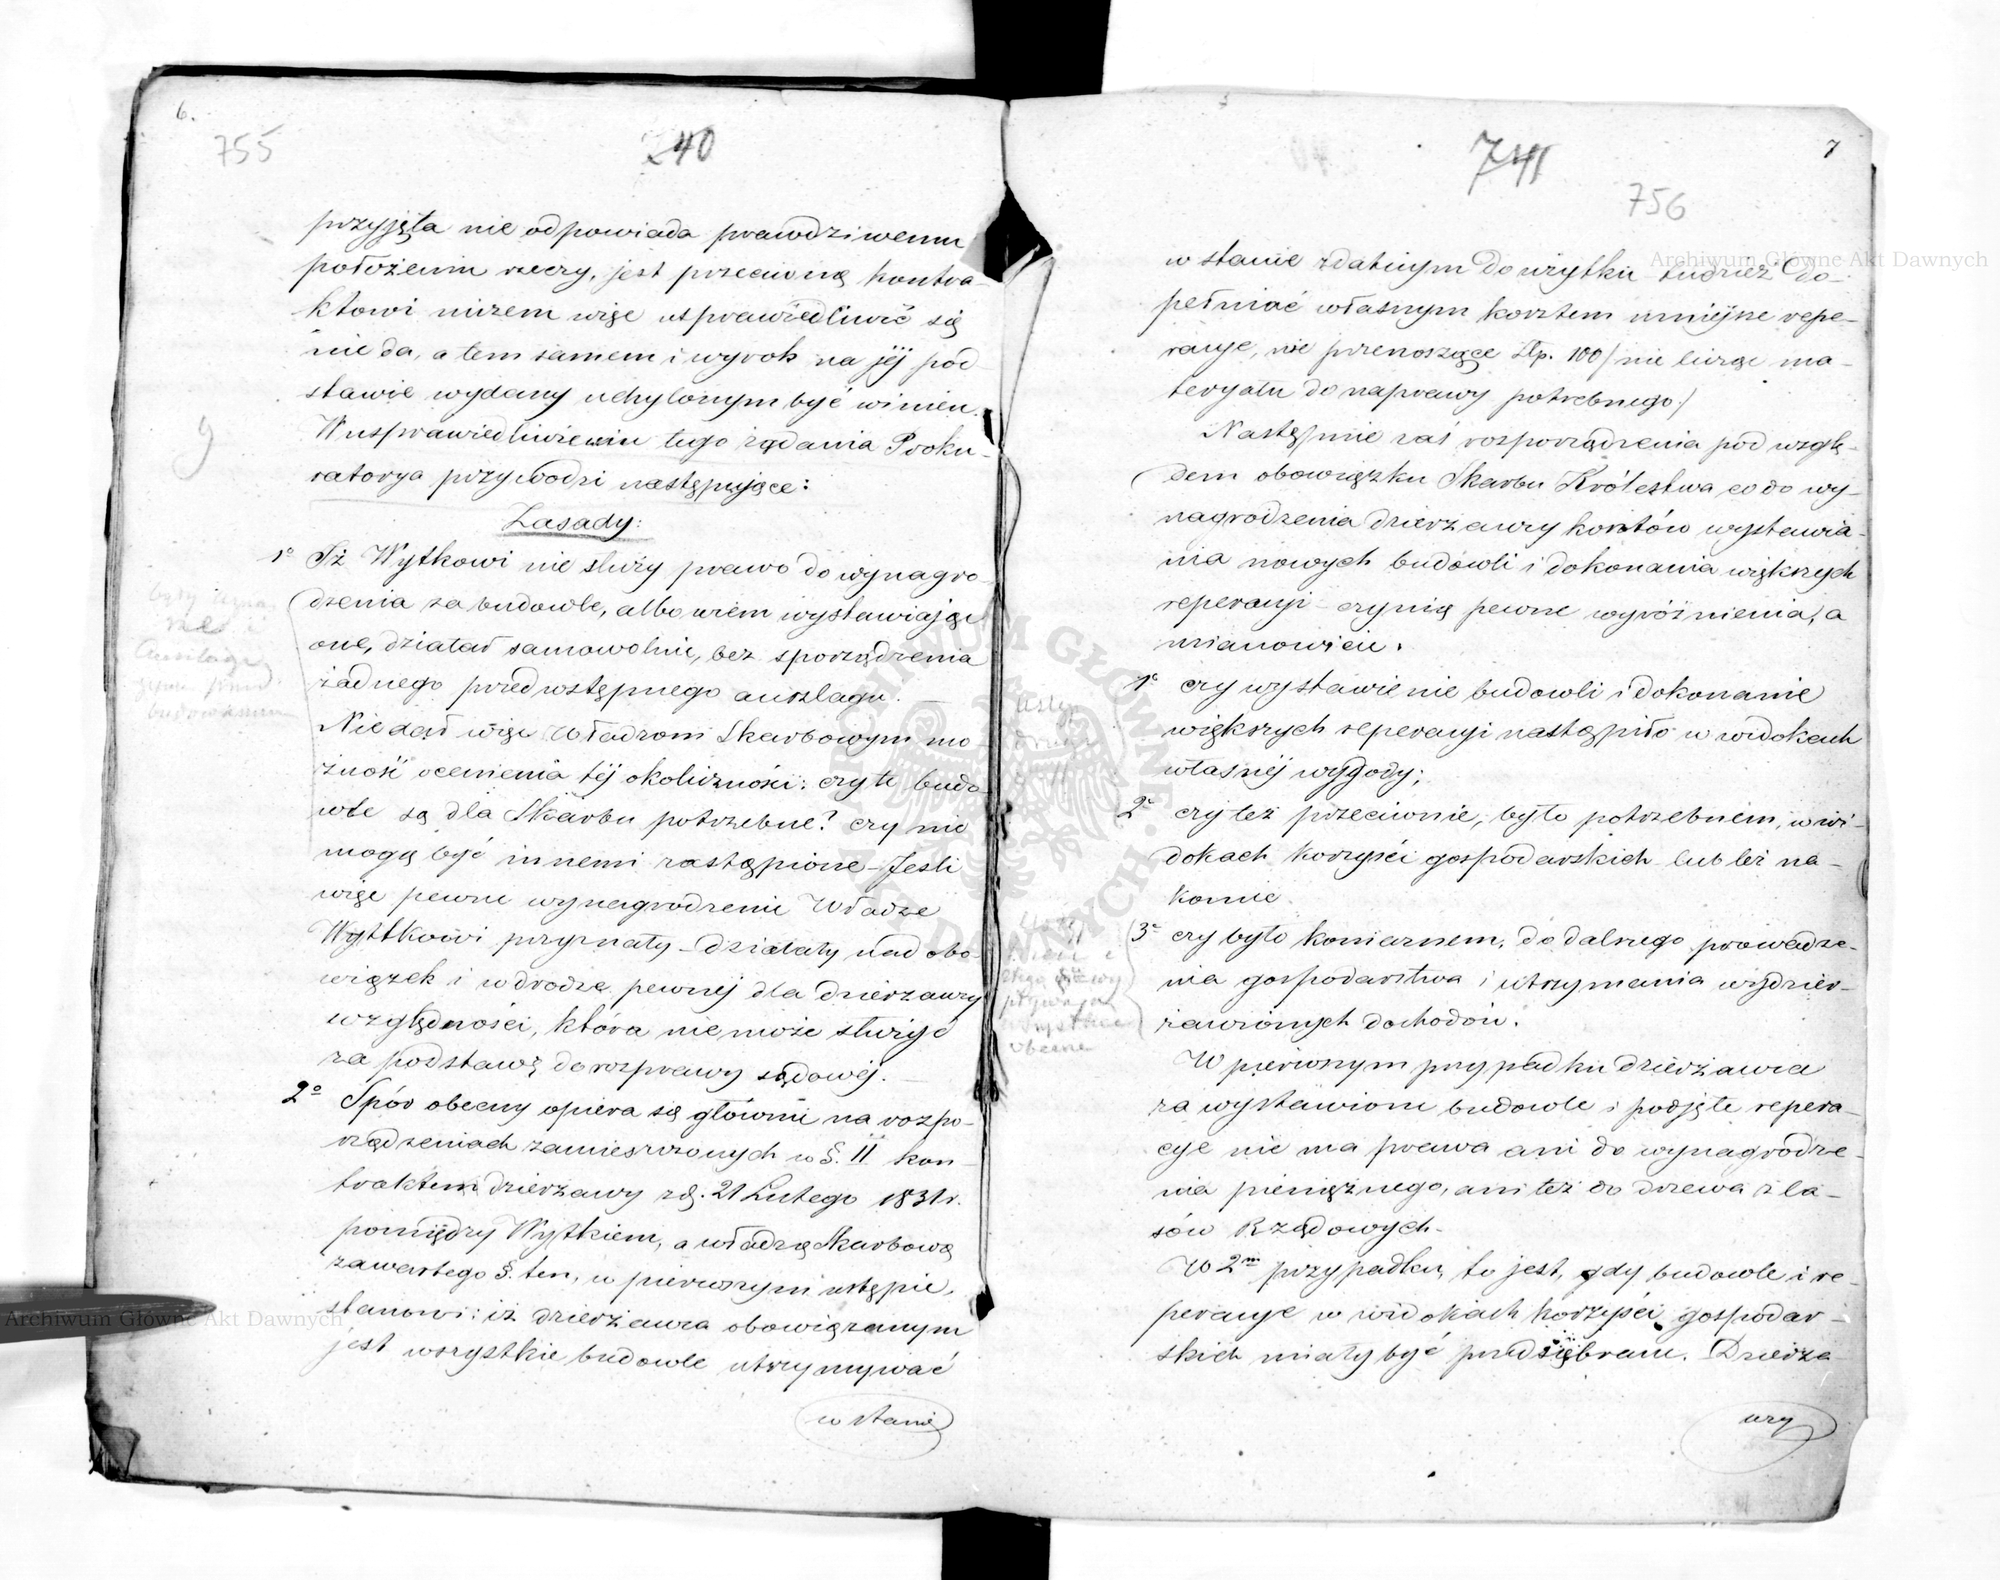 6.
755
240
przyjęta nie odpowiada prawdziwemu
położeniu rzeczy, jest przeciwną kontra-
ktowi niczem więc usprawiedliwić się
nie da, a tem samem i wyrok na jéj pod
stawie wydany uchylonym być winien.
W usprawiedliwieniu tego żądania Proku-
ratorya przywodzi następujące:
Zasady:
1º Iż Wytkowi nie służy prawo do wynagro-
dzenia za budowle, albowiem wystawiając
one, działał samowolnie, bez sporządzenia
żadnego przedwstępnego anszlagu. —
Nie dał więc Władzom Skarbowym mo-
żność ocenienia téj okoliczności: czy te budo
wle są dla Skarbu potrzebne? czy nie
mogą być innemi zastąpione – Jeśli
więc pewne wynagrodzenie Władze
Wytkowi przyznały – działały nad obo-
wiązek i w drodze pewnéj dla dzierżawcy
względności, która nie może służyć
za podstawę do rozprawy sądowéj. —
2º Spór obecny opiera się głównie na rozpo-
rządzeniach zamieszczonych w §. 11 kon-
traktem dzierżawy z d. 21 Lutego 1831 r.
pomiędzy Wytkiem, a władzą Skarbową
zawartego §. ten, w pierwszym wstępie,
stanowi: iż dzierżawca obowiązanym
jest wszystkie budowle utrzymywać
w stanie
741
7
756
w stanie zdatnym do użytku tudzież do-
pełniać własnym kosztem mniejsze repe-
racye, nie przenoszące Złp. 100 /nie licząc ma-
teryału do naprawy potrzebnego/
Następnie zaś rozporządzenia pod wzglę-
dem obowiązku Skarbu Królestwa co do wy-
nagrodzenia dzierżawcy kosztów wystawia-
nia nowych budowli i dokonania większych
reperacyi – czynią pewne wyróżnienia, a
mianowicie.
1º czy wystawienie budowli i dokonanie
większych reperacyi nastąpiło w widokach
własnéj wygody;
2º czy też przeciwnie, było potrzebnem, w wi-
dokach korzyści gospodarskich lub też na-
konie
3º czy było koniecznem, do dalszego prowadze-
nia gospodarstwa i utrzymania wydzier-
żawionych dochodów.
W pierwszym przypadku dzierżawca
za wystawione budowle i podjęte repera-
cye nie ma prawa ani do wynagrodze-
nia pieniężnego, ani też do drzewa z la-
sów Rządowych.
W 2m przypadku, to jest, gdy budowle i re-
peracye w widokach korzyści gospodar-
skich miały być przedsiębrane. Dzierża-
wcy
Archiwum Główne Akt Dawnych
Archiwum Główne Akt Dawnych